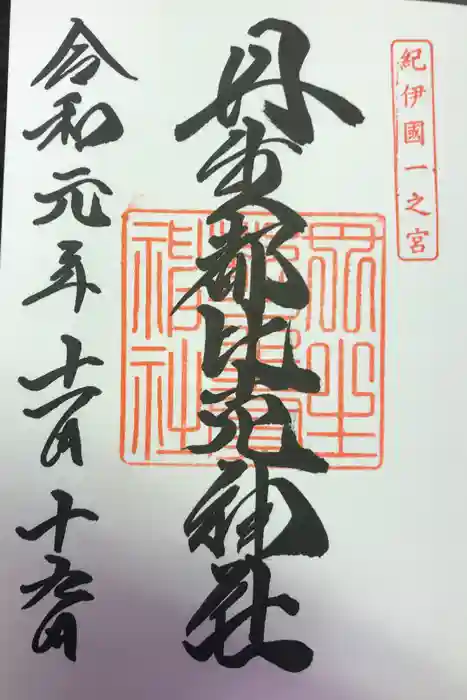 紀伊國一之宮
丹生都比売神社
丹生
神社
令和元年十一月十九日